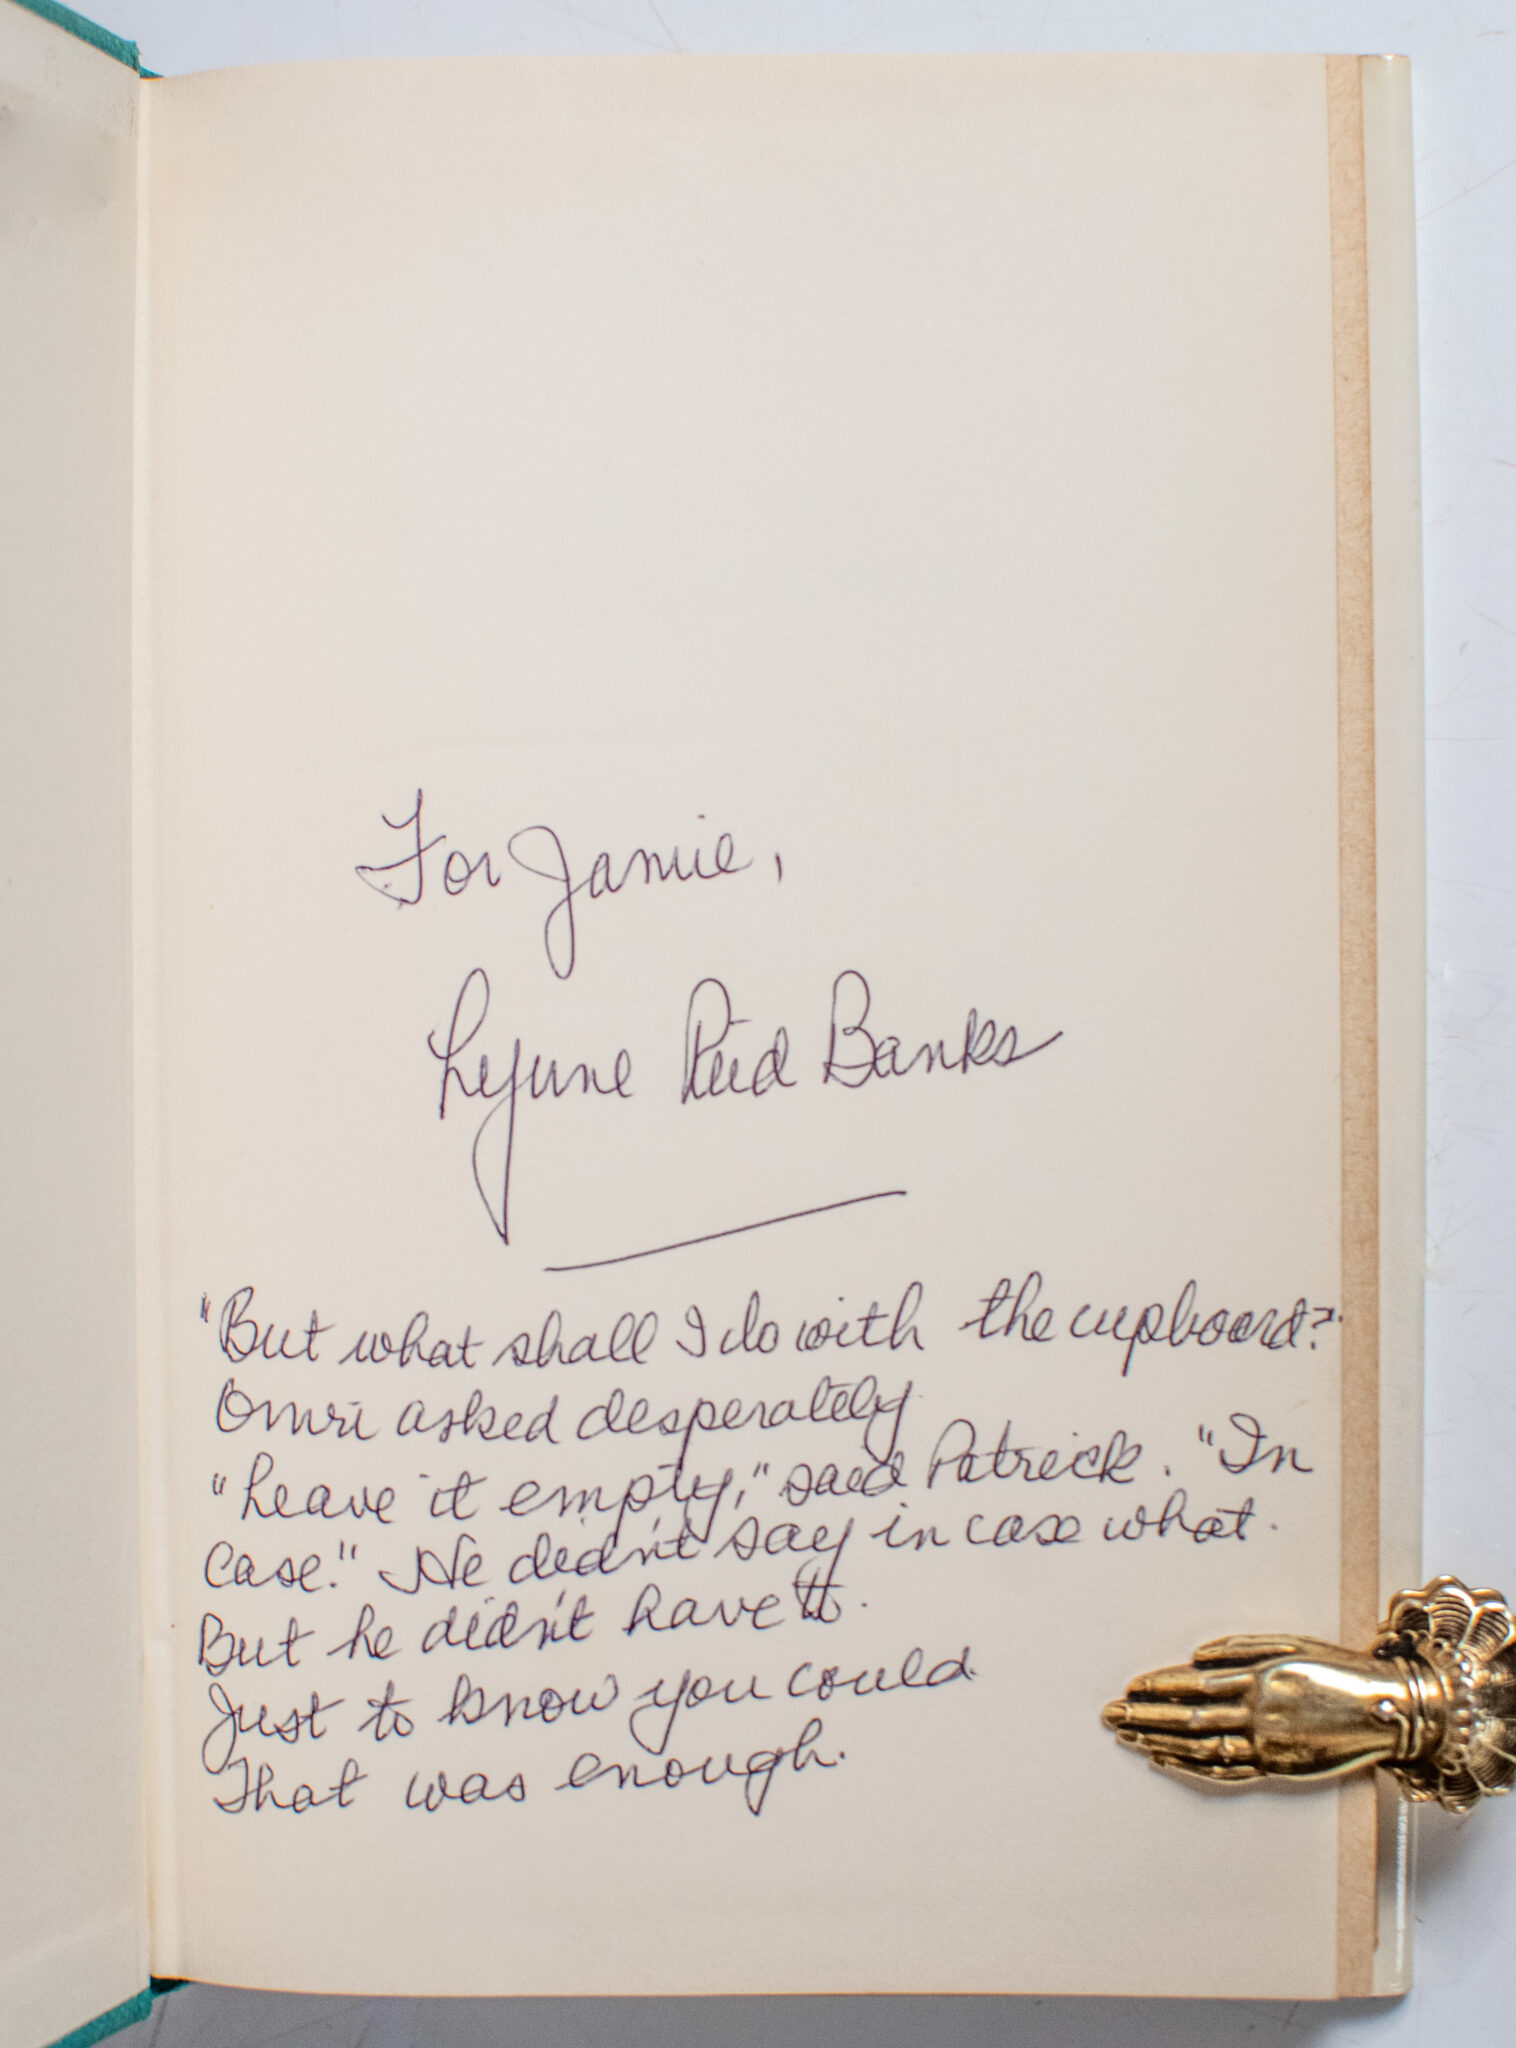 For Jamie,
Lynne Reid Banks
"But what shall I do with the cupboard?"
Omri asked desperately.
"Leave it empty," said Patrick. "In
case." He didn't say in case what.
But he didn't have to.
Just to know you could.
That was enough.